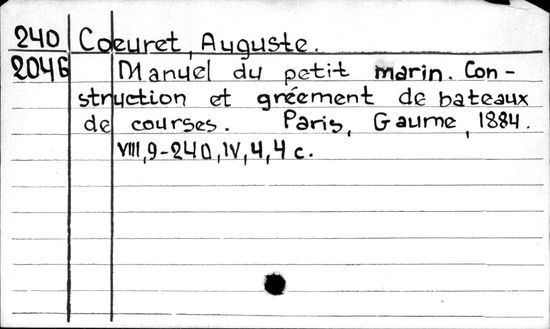 240 Coeuret, Auguste.
2046 Manuel du petit marin. Con-
struction et gréement de bateaux
de courses. Paris, Gaume, 1884.
VIII, 9-240, IV, 4, 4 c.